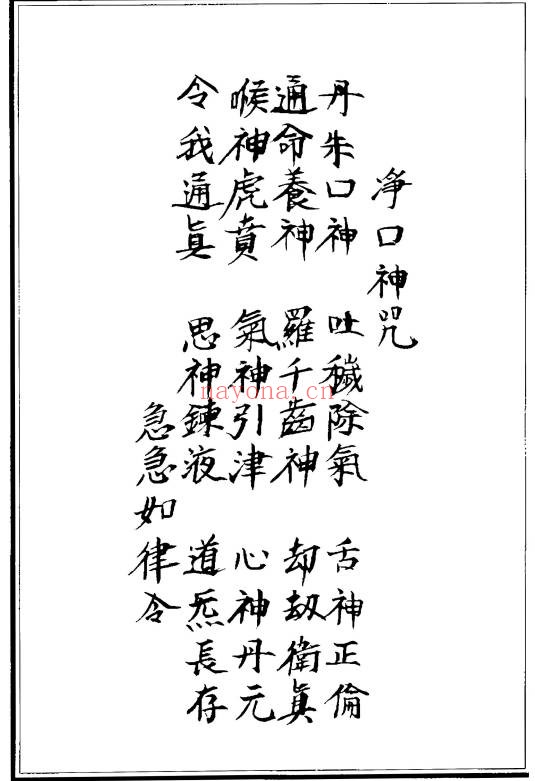 淨口神咒
丹朱口神 吐穢除氣 舌神正倫
通命養神 羅千齒神 却刼衛真
喉神虎賁 氣神引津 心神丹元
令我通真 思神鍊液 道炁長存
急急如律令
nayona.cn